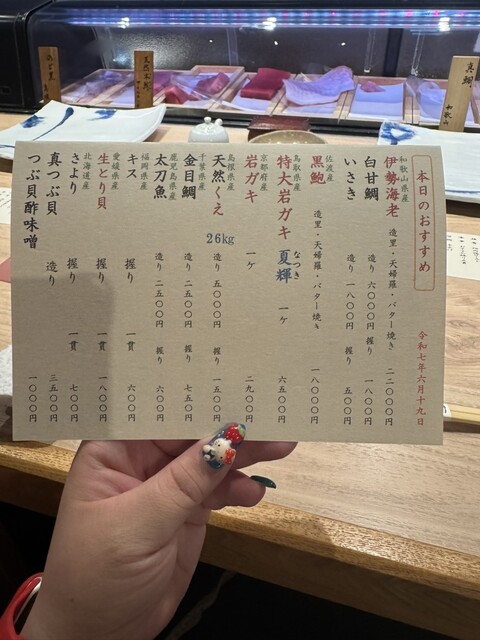 本日のおすすめ
令和七年六月十九日
和歌山県産
伊勢海老 造里・天婦羅・バター焼き 二二〇〇〇円
白甘鯛 造り 六〇〇〇円 握り 一八〇〇円
いさき 造り 一八〇〇円 握り 五〇〇円
佐渡産
黒鮑 造里・天婦羅・バター焼き 一八〇〇〇円
鳥取県産
特大岩ガキ 夏輝 なつき 一ケ 六五〇〇円
京都府産
岩ガキ 一ケ 二九〇〇円
島根県産
天然くえ 26kg 造り 五〇〇〇円 握り 一五〇〇円
千葉県産
金目鯛 造り 二五〇〇円 握り 七五〇円
鹿児島県産
太刀魚 造り 二五〇〇円 握り 六〇〇円
福岡県産
キス 握り 一貫 六〇〇円
愛媛県産
生とり貝 握り 一貫 一八〇〇円
さより 握り 一貫 七〇〇円
北海道産
真つぶ貝 造り 三五〇〇円
つぶ貝酢味噌 一〇〇〇円
のど黒
天然本鮪
真鯛
和歌山